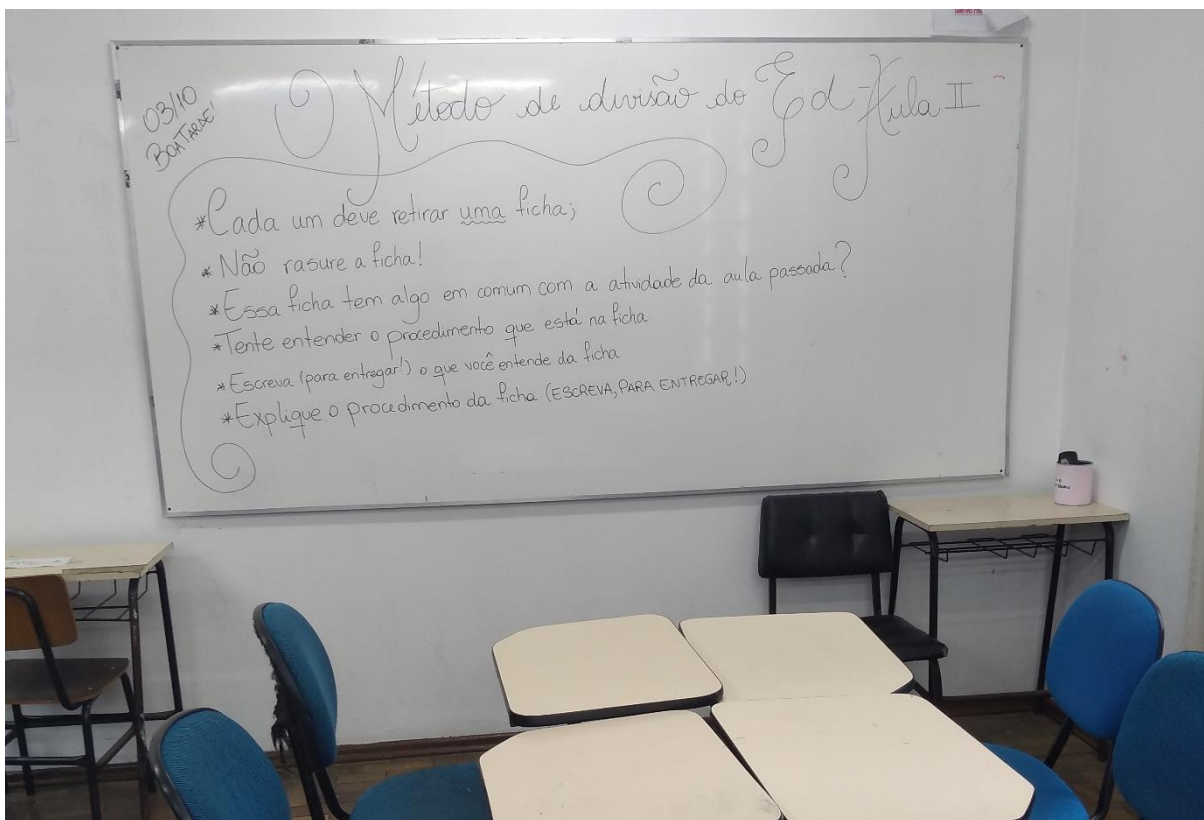 03/10
BOA TARDE!
O Método de divisão do Ed - Aula II
*Cada um deve retirar uma ficha;
*Não rasure a ficha!
*Essa ficha tem algo em comum com a atividade da aula passada?
*Tente entender o procedimento que está na ficha
*Escreva (para entregar!) o que você entende da ficha
*Explique o procedimento da ficha (ESCREVA, PARA ENTREGAR!)